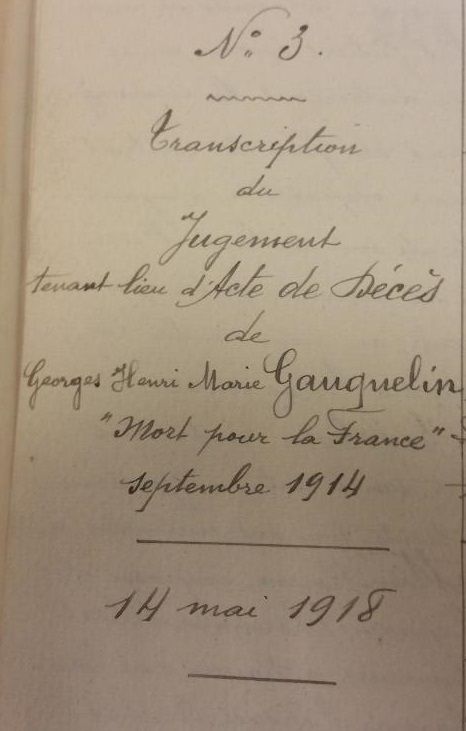 N° 3.
Transcription
du
Jugement
tenant lieu d'Acte de Décès
de
Georges Henri Marie Gauquelin
"Mort pour la France"
septembre 1914
14 mai 1918